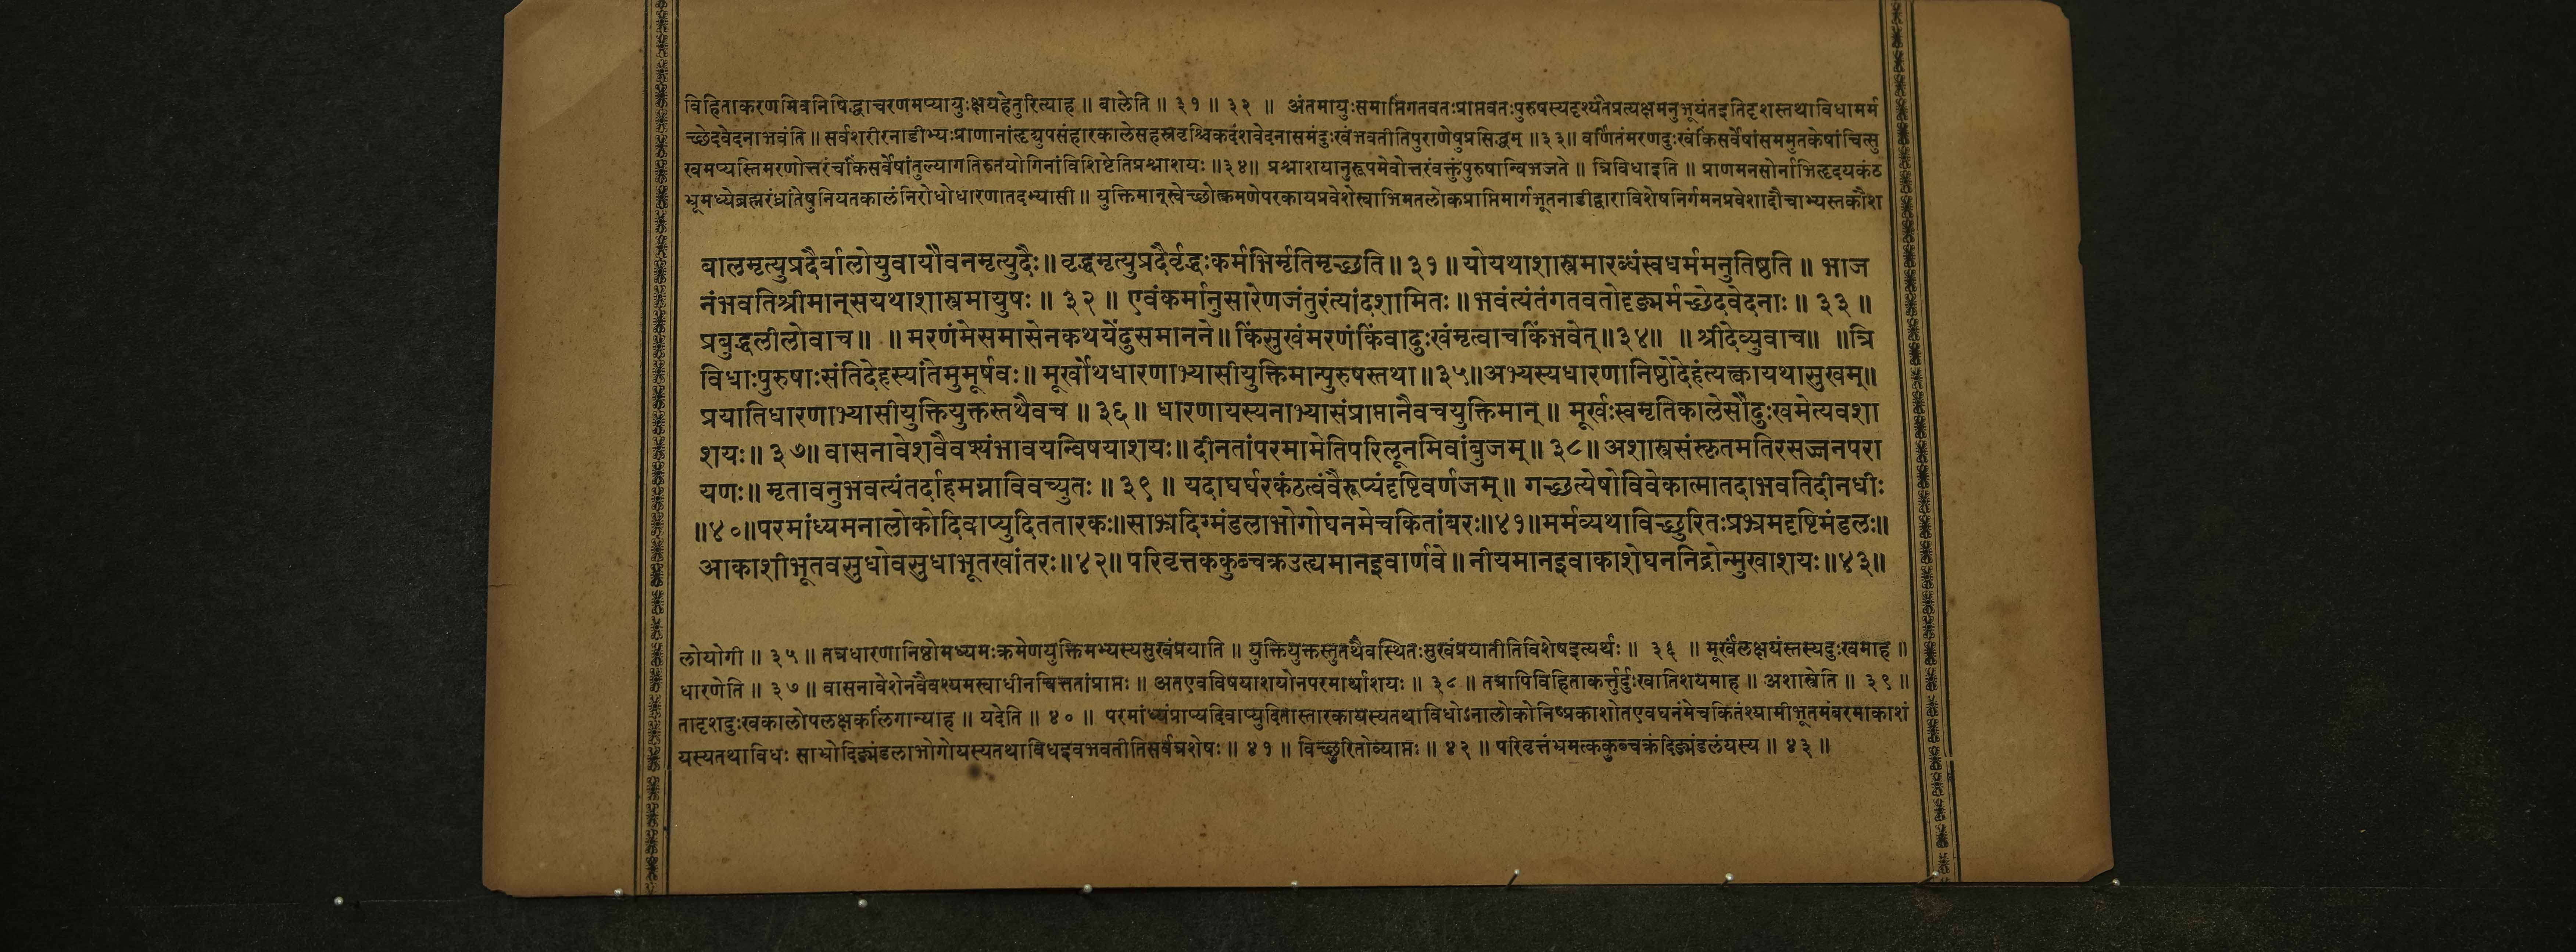 विहिताकरणमिवनिषिद्धाचरणमप्यायुःक्षयहेतुरित्याह ॥ बालेति ॥ ३१ ॥ ३२ ॥ अंतमायुःसमाप्तिंगतवतःप्राप्तवतःपुरुषस्यदृश्यंतेप्रत्यक्षमनुभूयंतइतिदृशस्तथाविधामर्म
च्छेदवेदनाभवंति ॥ सर्वशरीरनाडीभ्यःप्राणानांहृद्युपसंहारकालेसहस्रवृश्चिकदंशवेदनासमंदुःखंभवतीतिपुराणेषुप्रसिद्धम् ॥३३॥ वर्णितंमरणदुःखंकिंसर्वेषांसममुतकेषांचित्सु
खमप्यस्तिमरणोत्तरंचकिंसर्वेषांतुल्यागतिरुतयोगिनांविशिष्टेतिप्रश्नाशयः ॥३४॥ प्रश्नाशयानुरूपमेवोत्तरंवक्तुंपुरुषान्विभजते ॥ त्रिविधाइति ॥ प्राणमनसोर्नाभिहृदयकंठ
भ्रूमध्येब्रह्मरंध्रांतेषुनियतकालंनिरोधोधारणातदभ्यासी ॥ युक्तिमान्स्वेच्छोत्क्रमणेपरकायप्रवेशेस्वाभिमतलोकप्राप्तिमार्गभूतनाडीद्वाराविशेषनिर्गमनप्रवेशादौचाभ्यस्तकौश
बालमृत्युप्रदैर्बालोयुवायौवनमृत्युदैः ॥ वृद्धमृत्युप्रदैर्वृद्धःकर्मभिर्मृतिमृच्छति ॥ ३१ ॥ योयथाशास्त्रमारब्धंस्वधर्ममनुतिष्ठति ॥ भाज
नंभवतिश्रीमान्सयथाशास्त्रमायुषः ॥ ३२ ॥ एवंकर्मानुसारेणजंतुरंत्यांदशामितः ॥ भवंत्यंतंगतवतोदृङ्मर्मच्छेदवेदनाः ॥ ३३ ॥
प्रबुद्धलीलोवाच ॥ ॥ मरणंमेसमासेनकथयेंदुसमानने ॥ किंसुखंमरणंकिंवादुःखंमृत्वाचकिंभवेत् ॥३४॥ ॥ श्रीदेव्युवाच ॥ ॥ त्रि
विधाःपुरुषाःसंतिदेहस्यांतेमुमूर्षवः ॥ मूर्खोथधारणाभ्यासीयुक्तिमान्पुरुषस्तथा ॥३५॥ अभ्यस्यधारणानिष्ठोदेहंत्यक्त्वायथासुखम् ॥
प्रयातिधारणाभ्यासीयुक्तियुक्तस्तथैवच ॥ ३६ ॥ धारणायस्यनाभ्यासंप्राप्तानैवचयुक्तिमान् ॥ मूर्खःस्वमृतिकालेसौदुःखमेत्यवशा
शयः ॥ ३७॥ वासनावेशवैवश्यंभावयन्विषयाशयः ॥ दीनतांपरमामेतिपरिलूनमिवांबुजम् ॥ ३८ ॥ अशास्त्रसंस्कृतमतिरसज्जनपरा
यणः ॥ मृतावनुभवत्यंतर्दाहमग्नाविवच्युतः ॥ ३९ ॥ यदाघर्घरकंठत्वंवैरूप्यंदृष्टिवर्णजम् ॥ गच्छत्येषोविवेकात्मातदाभवतिदीनधीः
॥४०॥ परमांध्यमनालोकोदिवाप्युदिततारकः ॥ साभ्रदिग्मंडलाभोगोघनमेचकितांबरः ॥४१॥ मर्मव्यथाविच्छुरितःप्रभ्रमदृष्टिमंडलः ॥
आकाशीभूतवसुधोवसुधाभूतखांतरः ॥४२॥ परिवृत्तककुब्चक्रउत्द्यमानइवार्णवे ॥ नीयमानइवाकाशेघननिद्रोन्मुखाशयः ॥४३॥
लोयोगी ॥ ३५ ॥ तत्रधारणानिष्ठोमध्यमःक्रमेणयुक्तिमभ्यस्यसुखंप्रयाति ॥ युक्तियुक्तस्तुतथैवस्थितःसुखंप्रयातीतिविशेषइत्यर्थः ॥ ३६ ॥ मूर्खंलक्षयंस्तस्यदुःखमाह ॥
धारणेति ॥ ३७ ॥ वासनावेशेनवैवश्यमस्वाधीनचित्ततांप्राप्तः ॥ अतएवविषयाशयोनपरमार्थाशयः ॥ ३८ ॥ तत्रापिविहिताकर्त्तुर्दुःखातिशयमाह ॥ अशास्त्रेति ॥ ३९ ॥
तादृशदुःखकालोपलक्षकलिंगान्याह ॥ यदेति ॥ ४० ॥ परमांध्यंप्राप्यदिवाप्युदितास्तारकायस्यतथाविधोऽनालोकोनिष्प्रकाशोतएवघनंमेचकितंश्यामीभूतमंबरमाकाशं
यस्यतथाविधः साभ्रोदिङ्मंडलाभोगोयस्यतथाविधइवभवतीतिसर्वत्रशेषः ॥ ४१ ॥ विच्छुरितोव्याप्तः ॥ ४२ ॥ परिवृत्तंभ्रमत्ककुब्चक्रंदिङ्मंडलंयस्य ॥ ४३ ॥